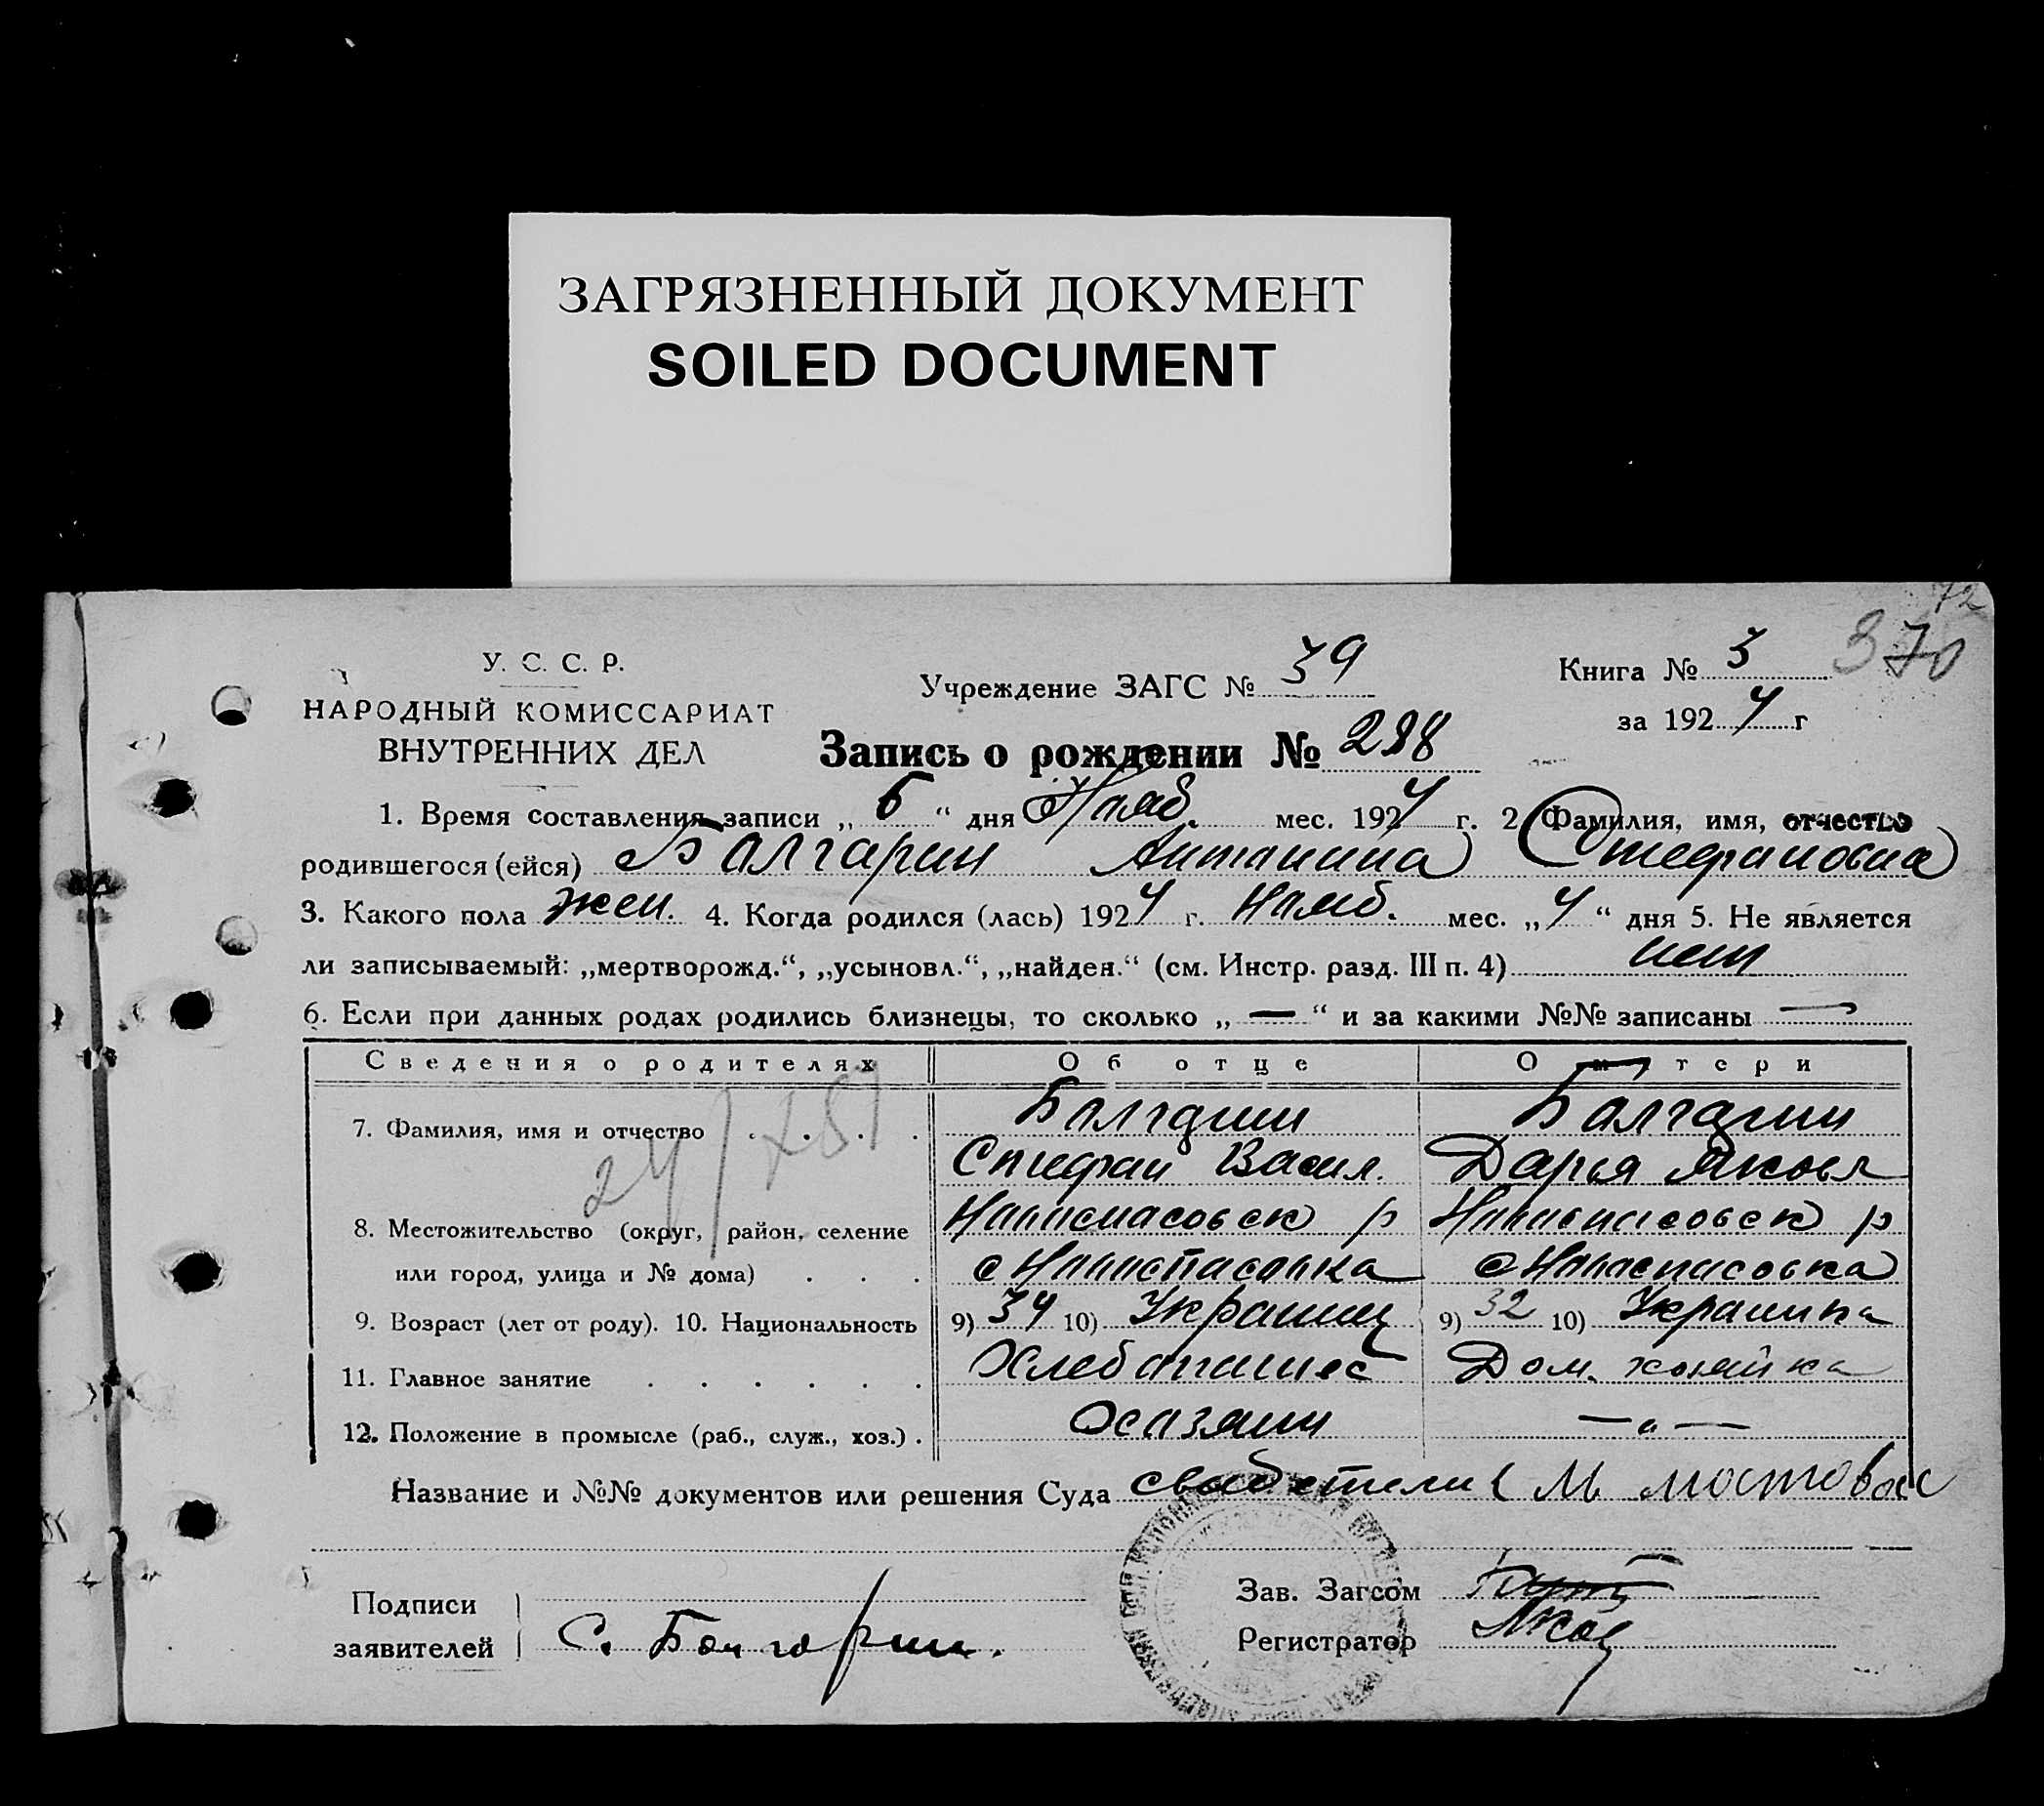 ЗАГРЯЗНЕННЫЙ ДОКУМЕНТ
SOILED DOCUMENT
72
У. С. С. Р.
НАРОДНЫЙ КОМИССАРИАТ
ВНУТРЕННИХ ДЕЛ
Учреждение ЗАГС № 39
Книга № 3
370
за 1924 г
Запись о рождении № 288
1. Время составления записи „ 6 “ дня Нояб. мес. 1924 г. 2 Фамилия, имя, отчество
родившегося (ейся) Балгарин Антанина Стефановна
3. Какого пола жен. 4. Когда родился (лась) 1924 г. Нояб. мес. „ 4 “ дня 5. Не является
ли записываемый: „мертворожд.“, „усыновл.“, „найден.“ (см. Инстр. разд. III п. 4) нет
6. Если при данных родах родились близнецы, то сколько „ — “ и за какими №№ записаны —
Сведения о родителях Об отце О матери
7. Фамилия, имя и отчество Балгарин Балгарин
Стефан Васил. Дарья Яковл
8. Местожительство (округ, район, селение Новаспасовск р Новаспасовск р
или город, улица и № дома) с Новаспасовка с Новаспасовка
9. Возраст (лет от роду). 10. Национальность 9) 34 10) Украинец 9) 32 10) Украинка
11. Главное занятие Хлебапашес Дом. хозяйка
12. Положение в промысле (раб., служ., хоз.) . Хазяин — „ —
Название и №№ документов или решения Суда свидетели М мостовас
Подписи
заявителей С. Болгорин.
Зав. Загсом
Регистратор